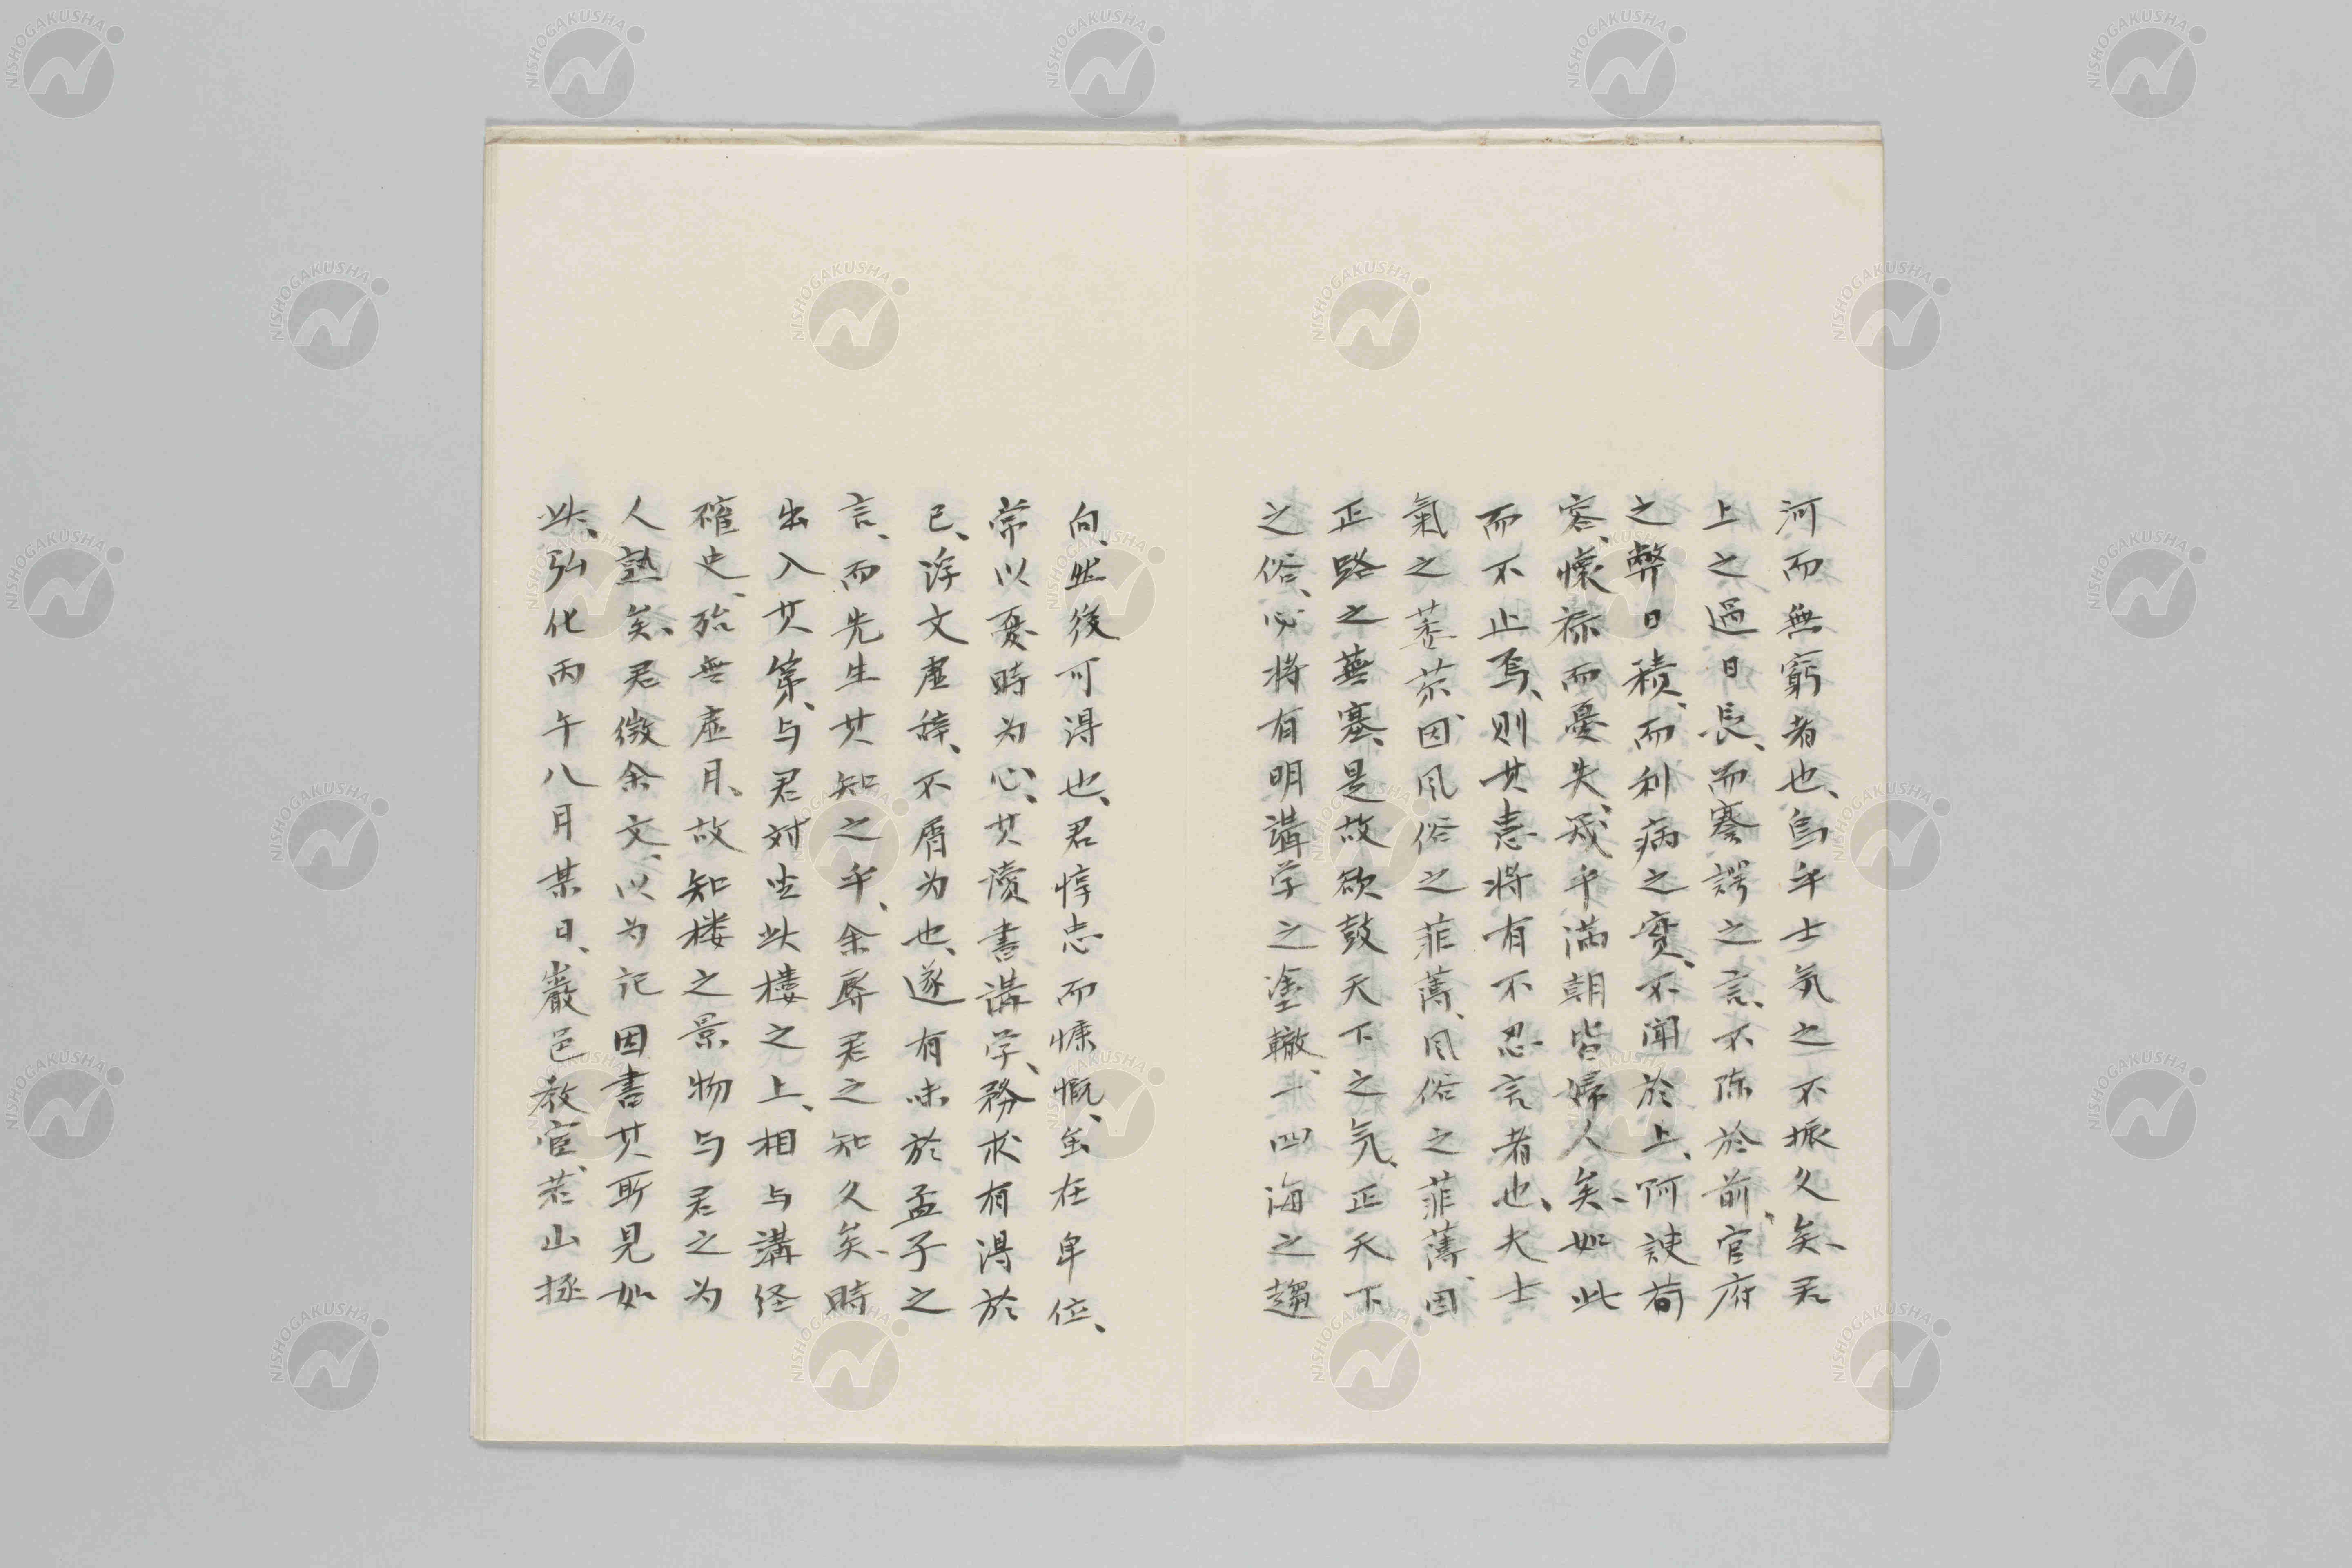 河而無窮者也、烏乎士気之不振久矣、君
上之過日長、而謇諤之言、不陈於前、官府
之弊日積、而利病之實、不聞於上、阿諛苟
容、懐祿而憂失、幾乎滿朝皆婦人矣、如此
而不止焉、則其患将有不忍言者也、夫士
氣之萎苶、因風俗之菲薄、風俗之菲薄、因
正路之蕪塞、是故欲鼓天下之気、正天下
之俗、必将有明講学之塗轍、一四海之趨
向、然後可得也、君惇忠而慷慨、虽在卑位、
常以憂時为心、其讀書講学、務求有得於
己、浮文虚辞、不屑为也、遂有味於孟子之
言、而先生其知之乎、余辱君之知久矣、時
出入其第、与君対坐此楼之上、相与講経
確史、殆無虚月、故知楼之景物与君之为
人熟矣、君徴余文、以为記因書其所見如
此、弘化丙午八月某日、巖邑教官、若山拯
NISHOGAKUSHA